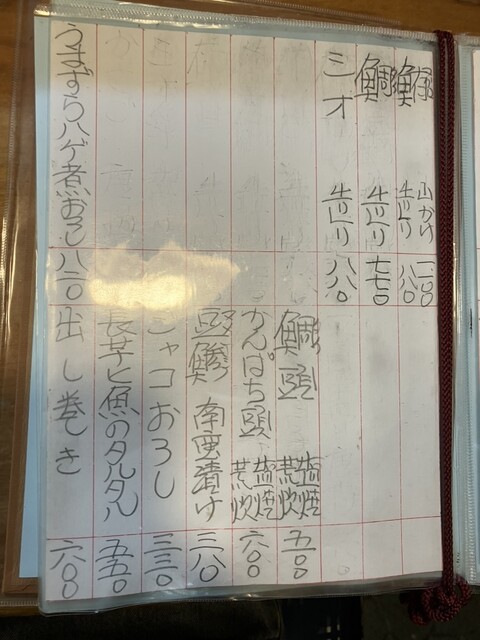 山かけ
造り
鯛 造り 七七〇
シオ 造り 八八〇
うまずらハゲ煮おろし 八二〇
鯛頭 塩焼 荒炊 五〇〇
かんぱち頭 塩焼 荒炊 六〇〇
豆鯵 南蛮漬け 三八〇
ジャコおろし 三三〇
長芋と魚のタルタル 五五〇
出し巻き 六〇〇